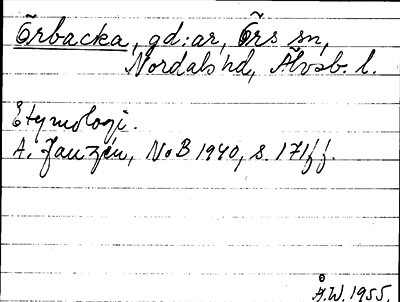 Örbacka, gd:ar, Örs sn,
Nordals hd, Älvsb. l.
Etymologi.
A. Janzén, NoB 1940, s. 171ff.
Å.W. 1955.